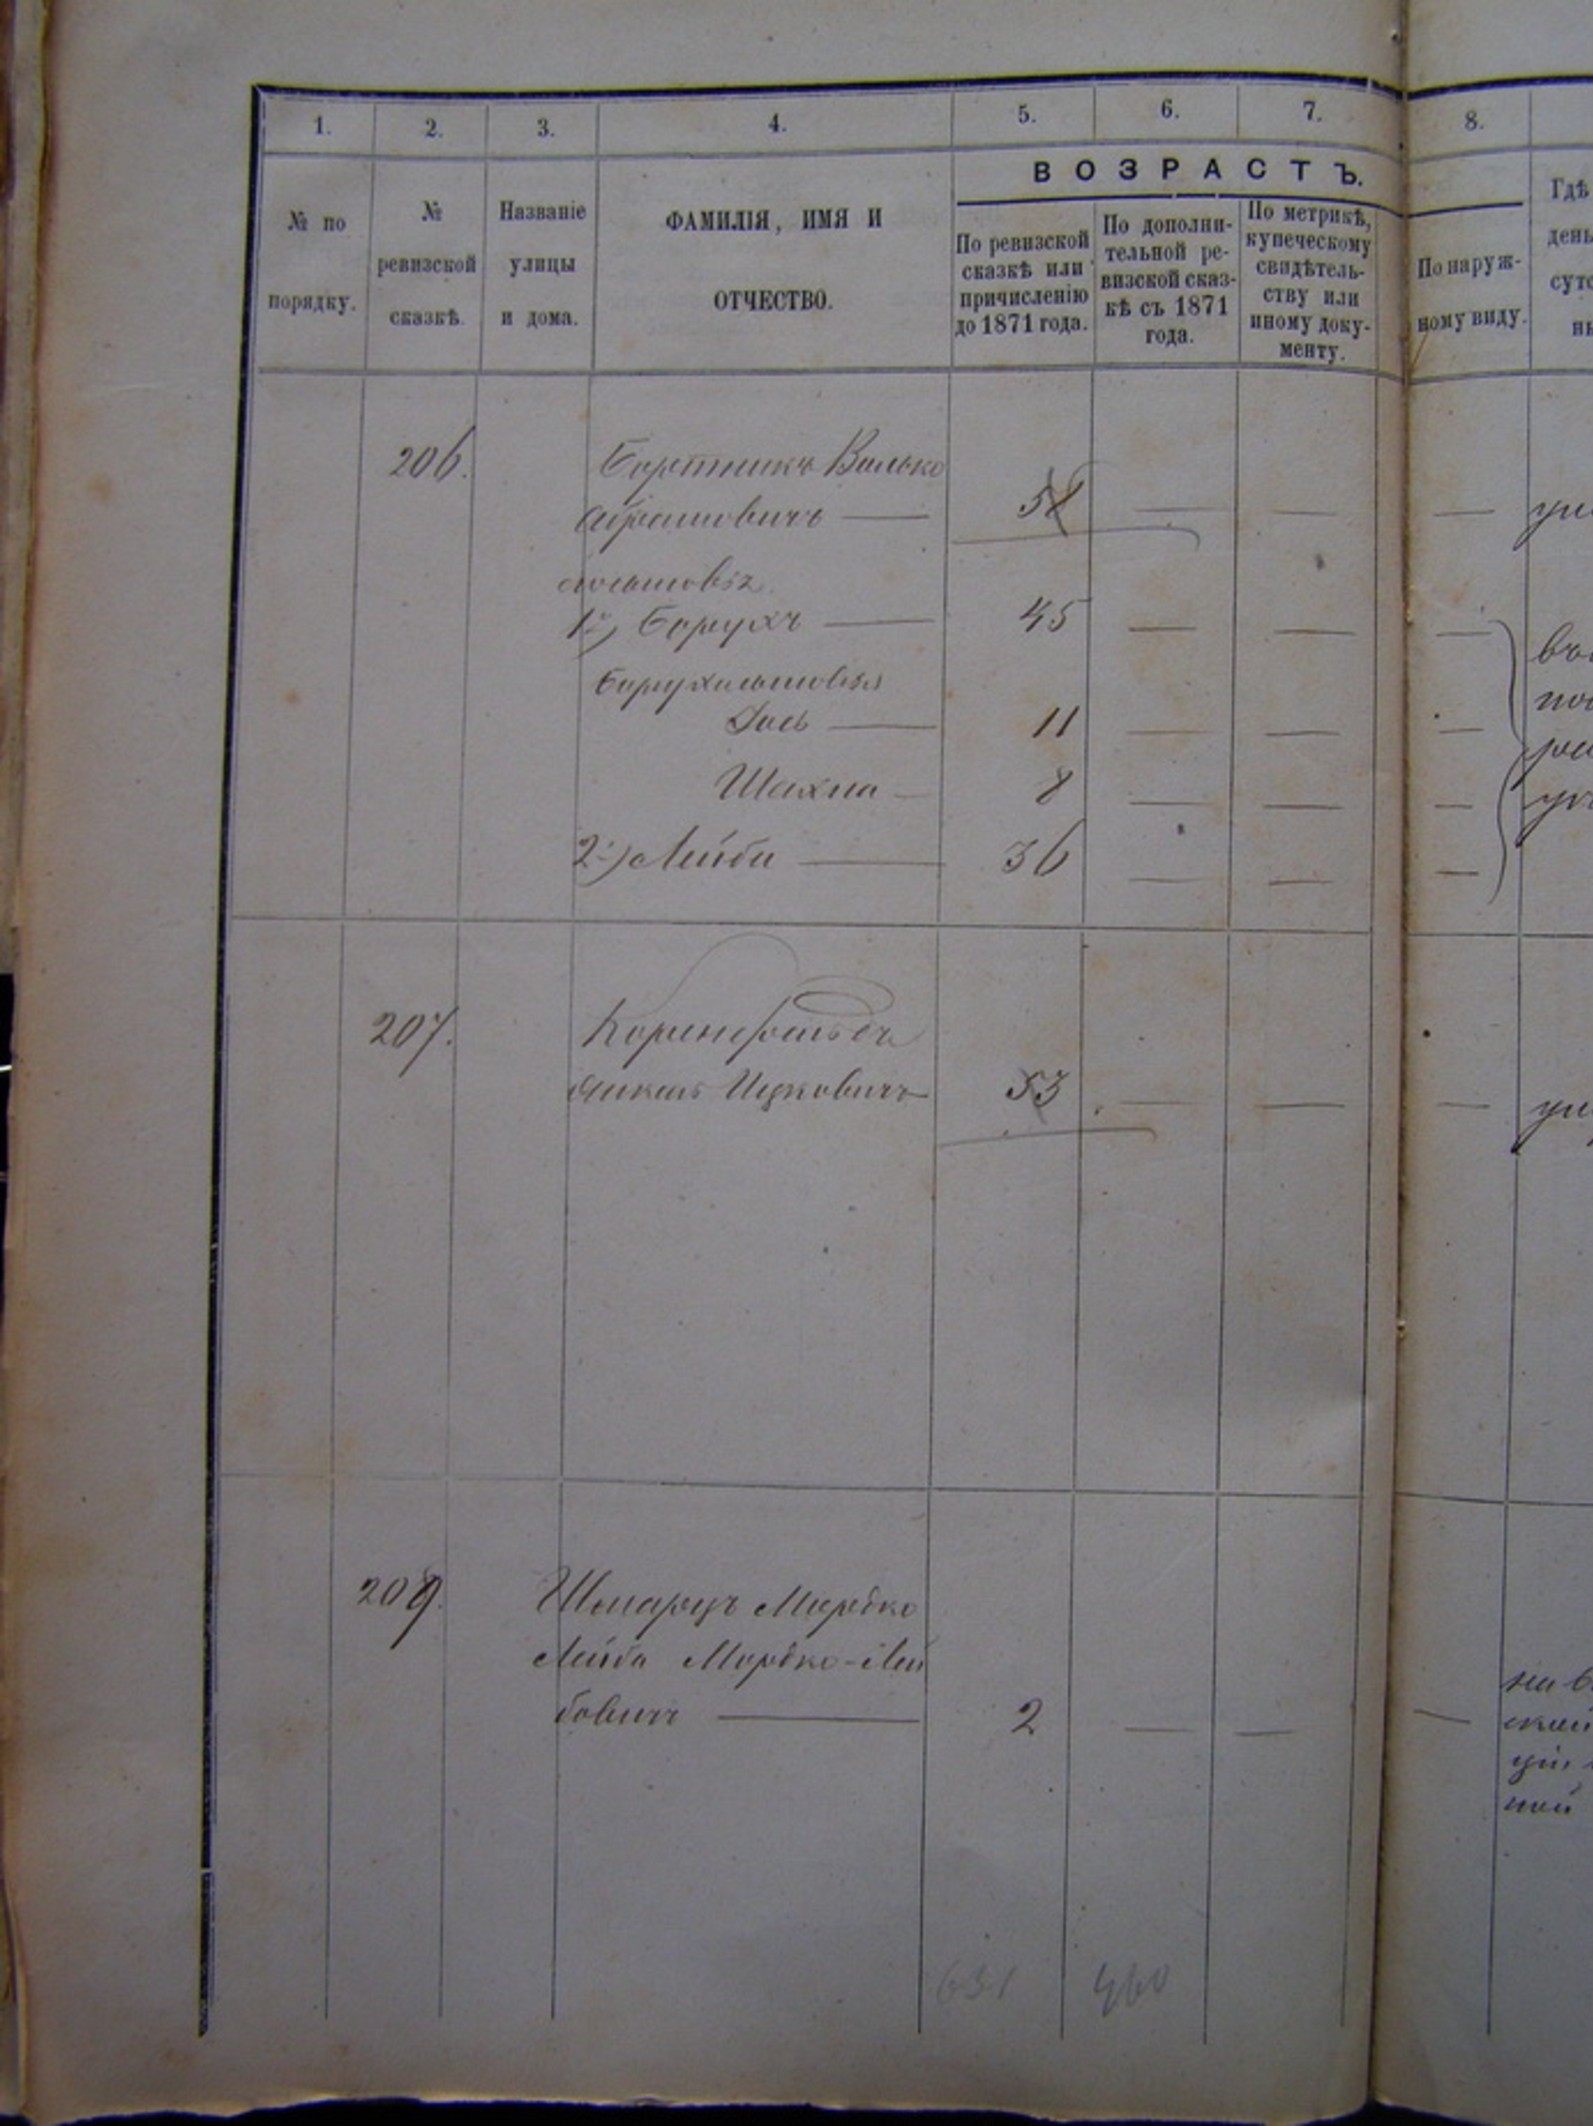 1. 2. 3. 4. 5. 6. 7. 8.
ВОЗРАСТЪ.
№ по
порядку.
№
ревизской
сказкѣ.
Названіе
улицы
и дома.
ФАМИЛІЯ, ИМЯ И
ОТЧЕСТВО.
По ревизской
сказкѣ или
причисленію
до 1871 года.
По дополни-
тельной ре-
визской сказ-
кѣ съ 1871
года.
По метрикѣ,
купеческому
свидѣтель-
ству или
иному доку-
менту.
По наруж-
ному виду.
Гдѣ
206. Бортникъ Валько
Абрамовичъ — 58 — — —
1й) Борухъ — 45 — — —
11 — — —
Шахна — 8 — — —
2й) Лейба — 36 — — —
207.
Ицковичъ 53 — — —
209. Шварцъ Мордко
Лейба Мордко-Лей
бовичъ — 2 — — —
631 460